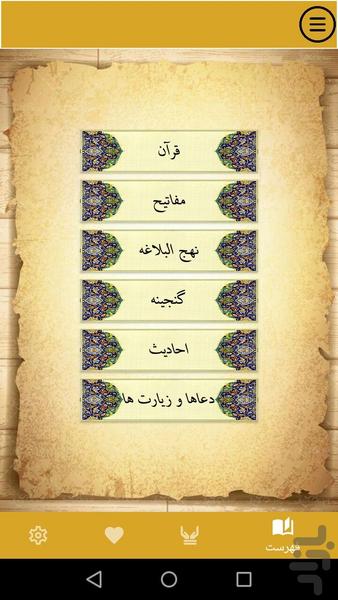 قرآن
مفاتیح
نهج البلاغه
گنجینه
احادیث
دعاها و زیارت ها
فهرست
بازار